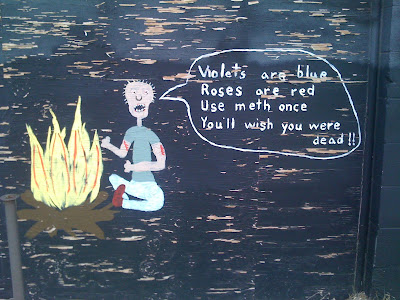 Violets are blue
Roses are red
Use meth once
You'll wish you were
dead!!